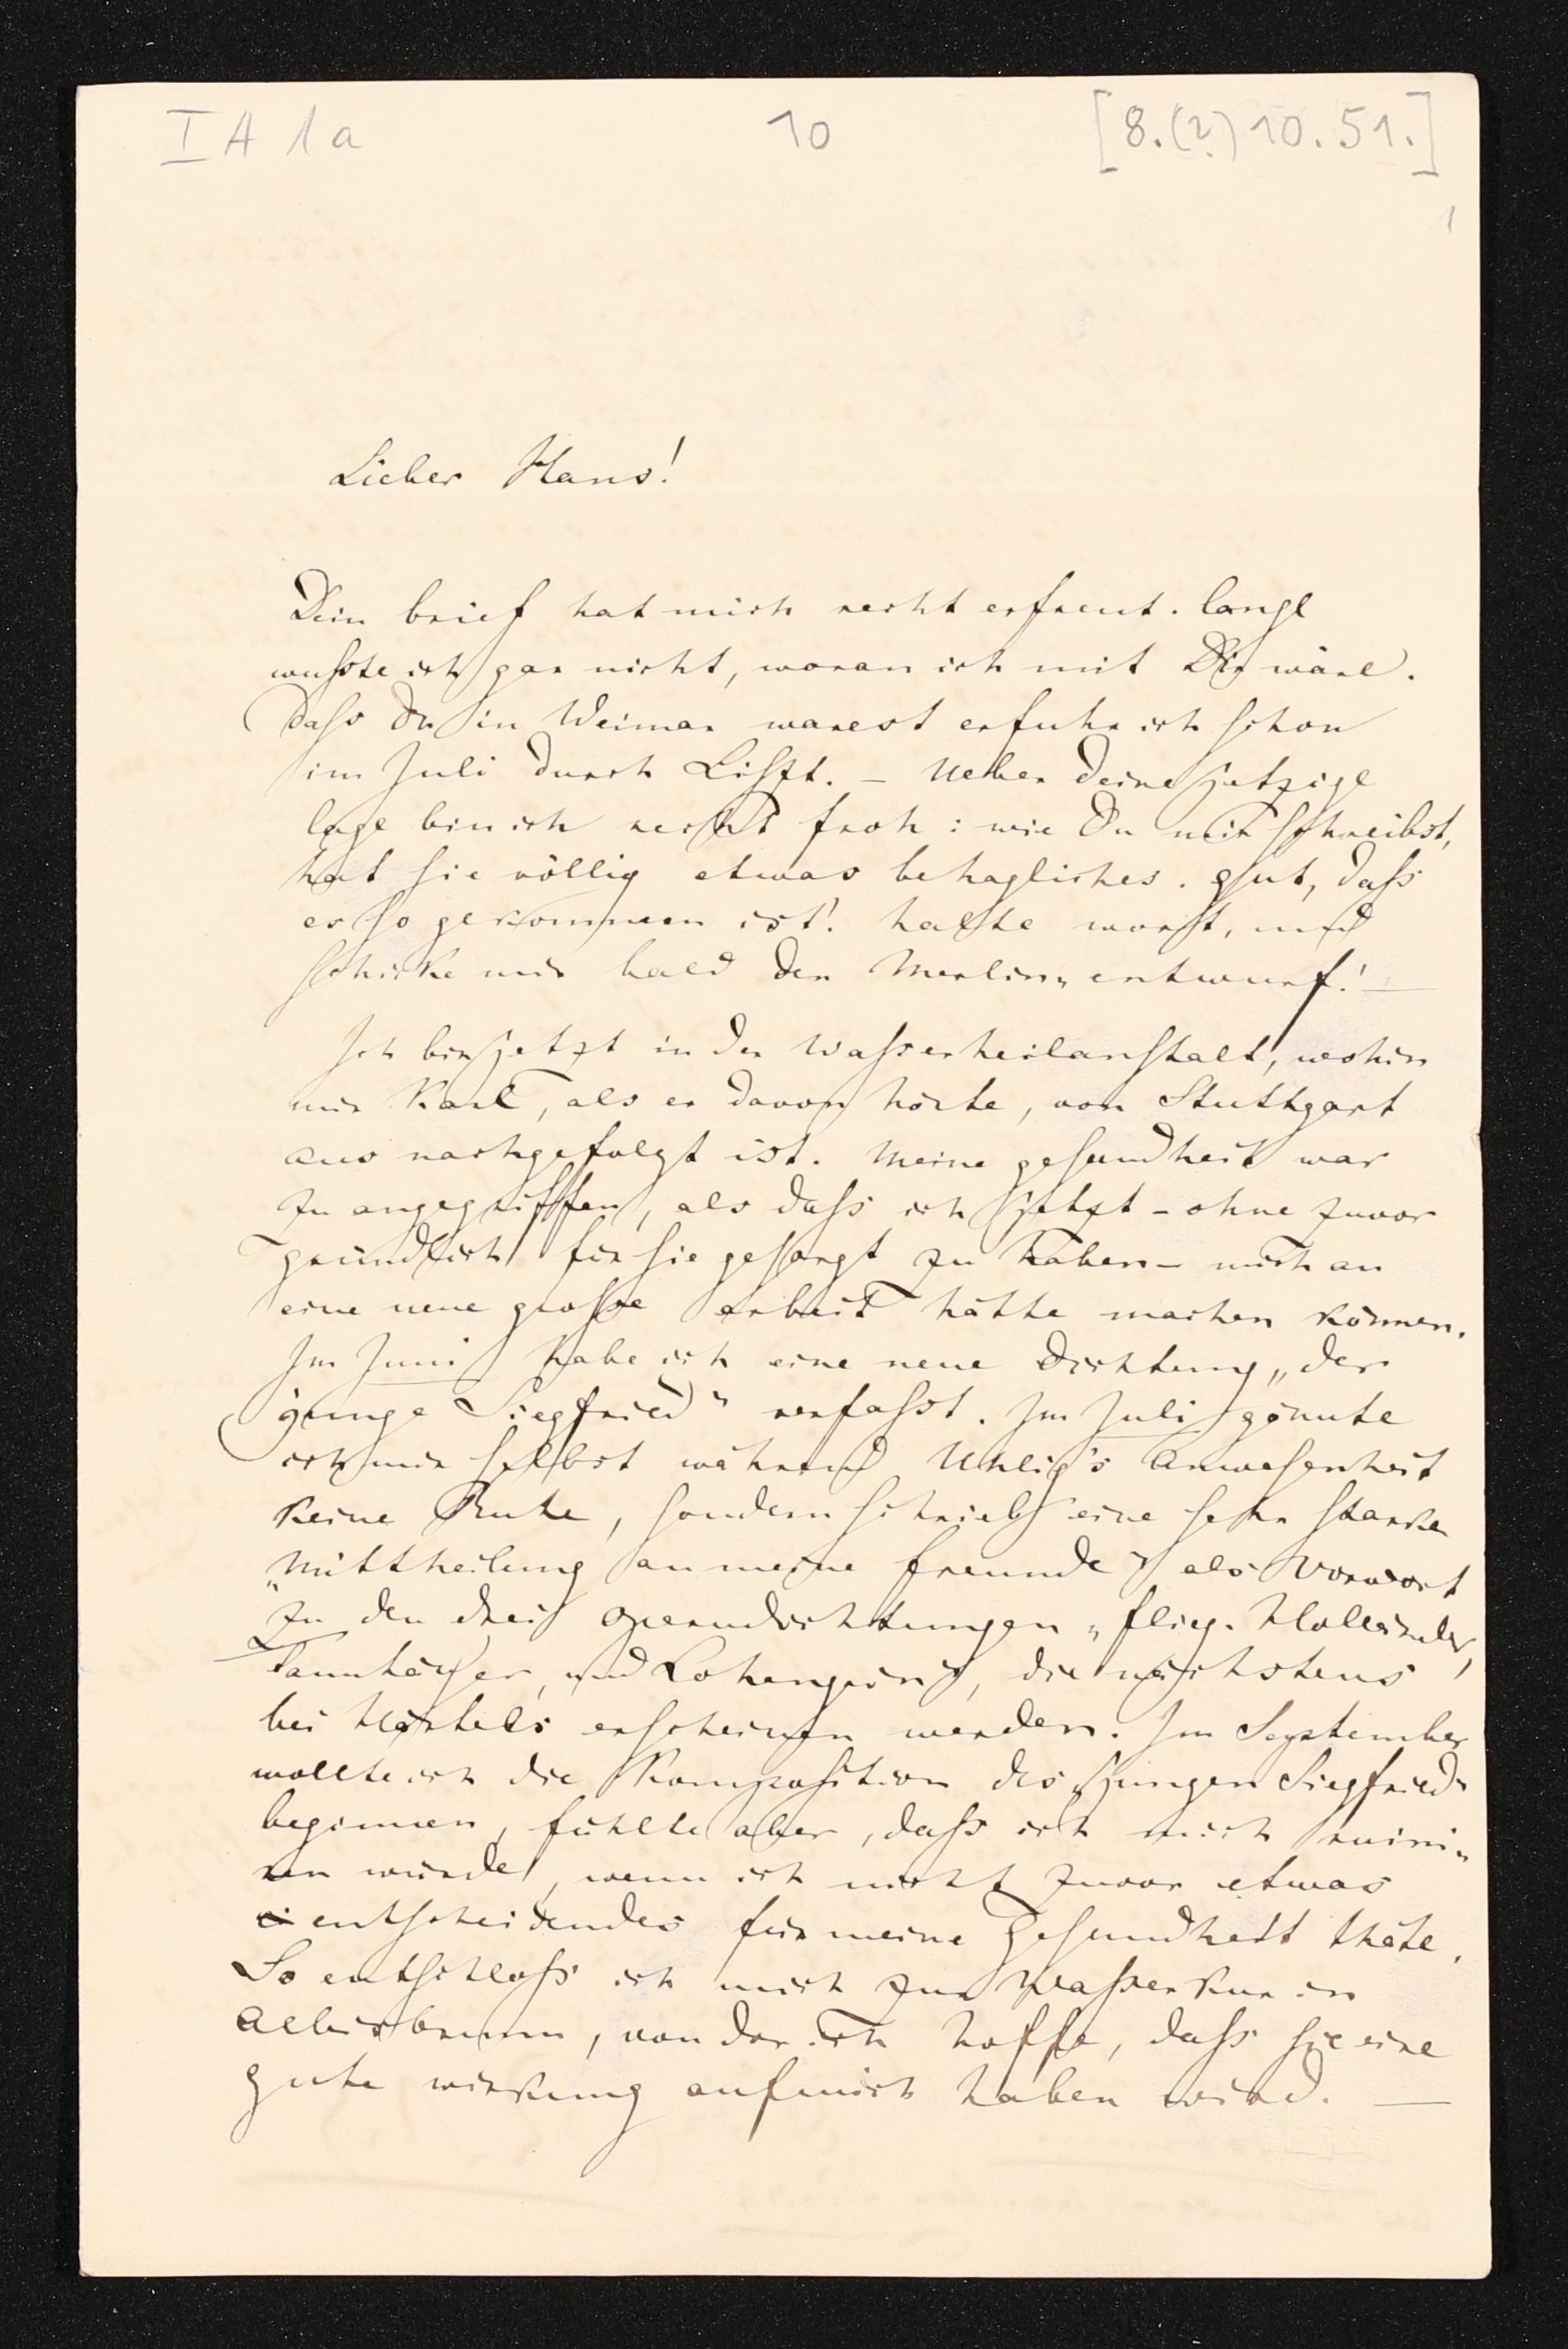 I A 1a
10
[8.(?)10.51.]
1
Lieber Hans!
Dein brief hat mich recht erfreut. lange
wußte ich gar nicht, woran ich mit Dir wäre.
Daß Du in Weimar warest erfuhr ich schon
im Juli durch Liszt. – Ueber deine jetzige
lage bin ich recht froh: wie Du mir schreibst,
hat sie völlig etwas behagliches. gut, daß
es so gekommen ist! halte worst, und
schicke mir bald den Merlin„entwurf! —
Ich bin jetzt in der Wasserheilanstalt, wohin
mir Karl, als er davon hörte, von Stuttgart
aus nachgefolgt ist. Meine gesundheit war
zu angegriffen, als daß ich jetzt – ohne zuvor
gründlich für sie gesorgt zu haben – mich an
eine neue große arbeit hätte machen können.
Im Juni habe ich eine neue Dichtung „der
junge Siegfried" verfaßt. Im Juli gönnte
ich mir selbst während Uhlig's Anwesenheit
keine Ruhe, sondern schrieb eine sehr starke
„Mittheilung an meine freunde" als Vorwort
zu den drei operndichtungen „flieg. Holländer,
Tannhäuser, und Lohengrin", die nächstens
bei Härtels erscheinen werden. Im September
wollte ich die Komposition des jungen Siegfried's
beginnen, fühlte aber, daß ich mich ruini„
ren würde, wenn ich nicht zuvor etwas
entscheidendes für meine Gesundheit thäte.
So entschloß ich mich zur Wasserkur in
Albisbrunn, von der ich hoffe, daß sie eine
gute wirkung auf mich haben wird. —